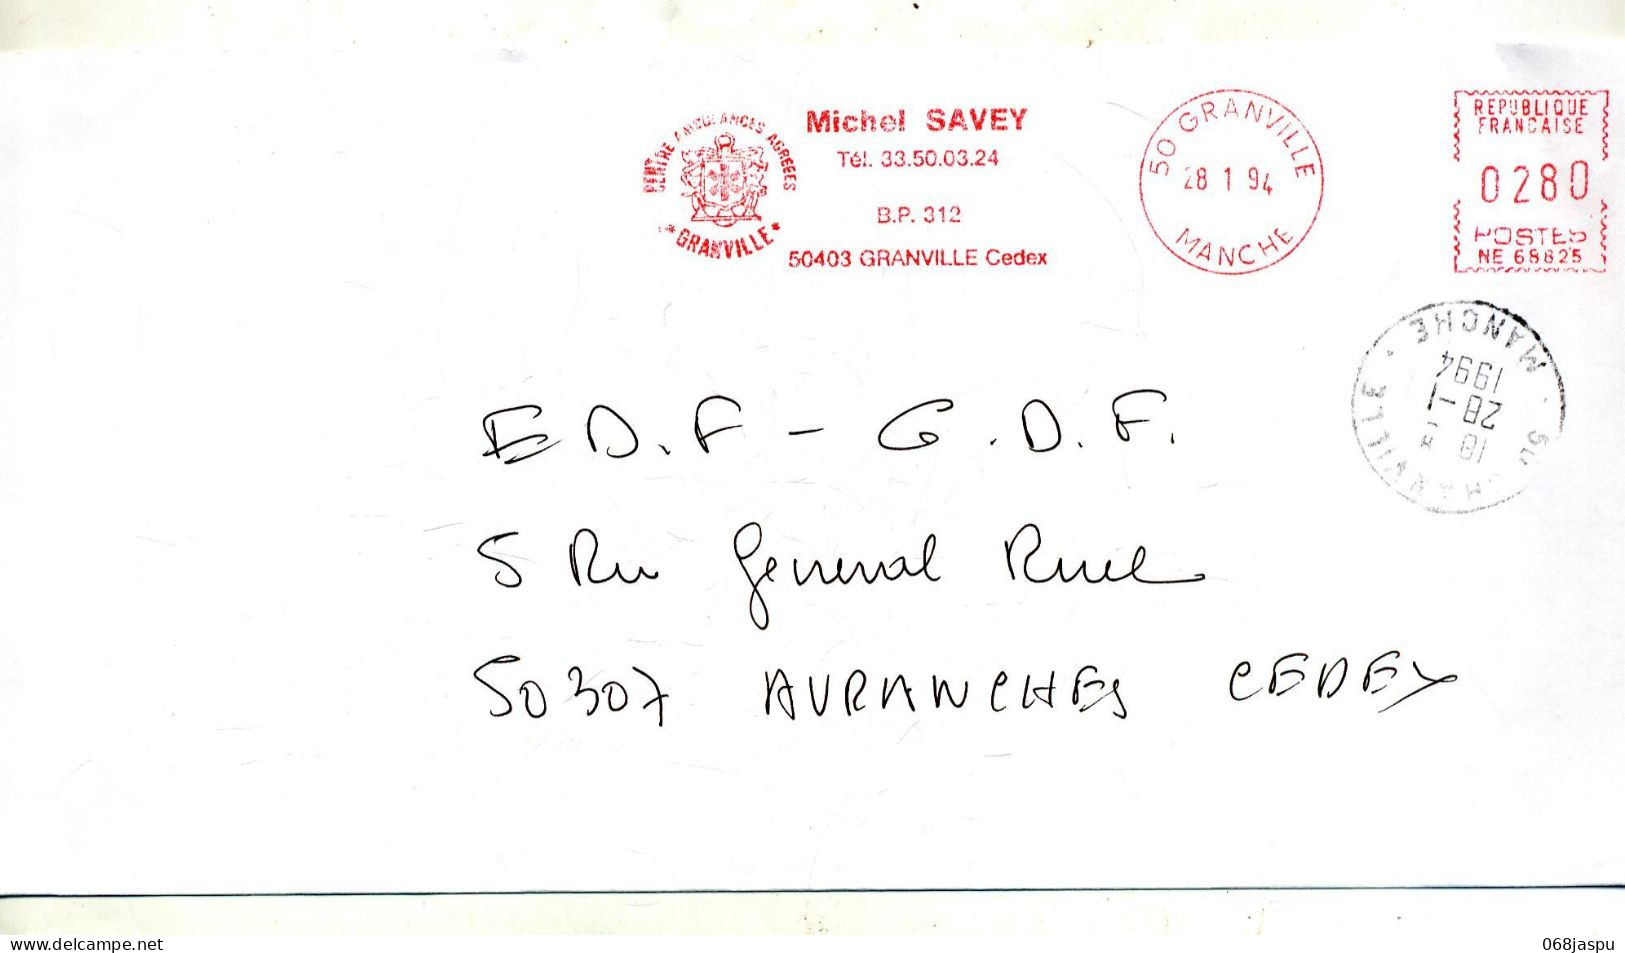 CENTRE AMBULANCES AGREEES
* GRANVILLE *
Michel SAVEY
Tél. 33.50.03.24
B.P. 312
50403 GRANVILLE Cedex
50 GRANVILLE
28 1 94
MANCHE
REPUBLIQUE
FRANCAISE
0280
POSTES
NE 68825
MANCHE
1994
28-1
18 H
50 GRANVILLE
E D.F - G.D.F.
5 Ru General Ruel
50307 AVRANCHES CEDEX
www.delcampe.net
068jaspu